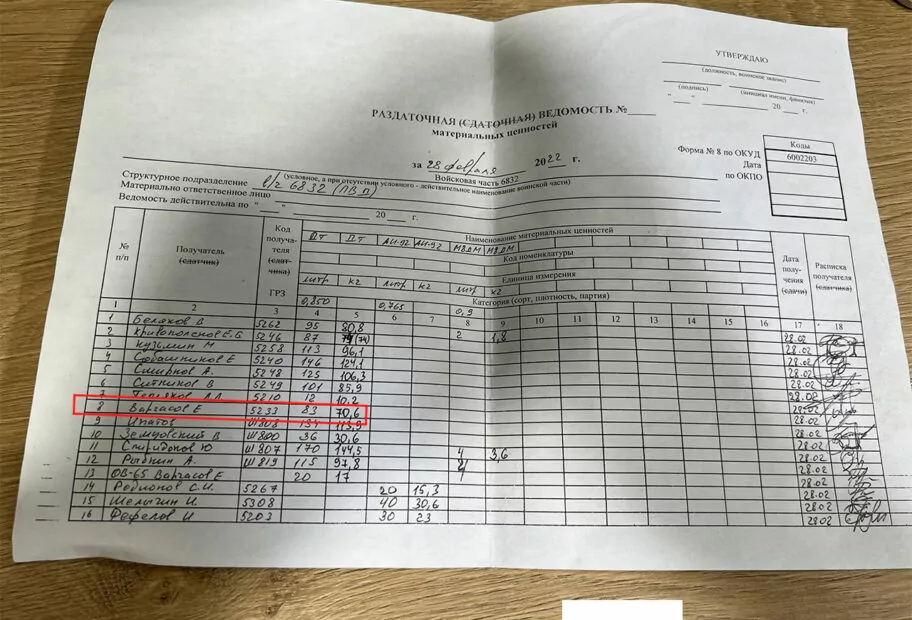 УТВЕРЖДАЮ
(должность, воинское звание)
(подпись) (инициал имени, фамилия)
"___" 20 г.
РАЗДАТОЧНАЯ (СДАТОЧНАЯ) ВЕДОМОСТЬ №
материальных ценностей
за 28 февраля 2022 г.
Войсковая часть 6832
Форма № 8 по ОКУД
Дата
по ОКПО
Коды
6002203
Структурное подразделение в/ч 6832 (ПВП)
(условное, а при отсутствии условного - действительное наименование воинской части)
Материально ответственное лицо
Ведомость действительна по "___" 20 г.
№ п/п
Получатель (сдатчик)
Код получателя (сдатчика)
ГРЗ
Наименование материальных ценностей
ДТ ДТ АИ-92 АИ-92 МВДМ МВДМ
Код номенклатуры
Единица измерения
литр кг литр кг литр кг
Категория (сорт, плотность, партия)
0,850 0,765 0,9
Дата получения (сдачи)
Расписка получателя (сдатчика)
1 2 3 4 5 6 7 8 9 10 11 12 13 14 15 16 17 18
1 Беляков В 5262 95 80,8 28.02
2 Кривополенов Е.Б 5246 87 (74) 2 1,8 28.02
3 Кузьмин М 5258 113 96,1 28.02
4 Собашников Е 5240 146 124,1 28.02
5 Смирнов А. 5248 125 106,3 28.02
6 Ситников В 5249 101 85,9 28.02
7 5210 12 10,2 28.02
8 Варгасов Е 5233 83 70,6 28.02
9 Ипатов Ш808 134 113,9 28.02
10 Земцовский В Ш800 36 30,6 28.02
11 Спиридонов Ю Ш807 170 144,5 4 3,6 28.02
12 А Ш819 115 97,8 28.02
13 ОВ-65 Варгасов Е 20 17 28.02
14 Родионов С.И. 5267 20 15,3 28.02
15 Шелыгин И. 5308 40 30,6 28.02
16 Фефелов И 5203 30 23 28.02